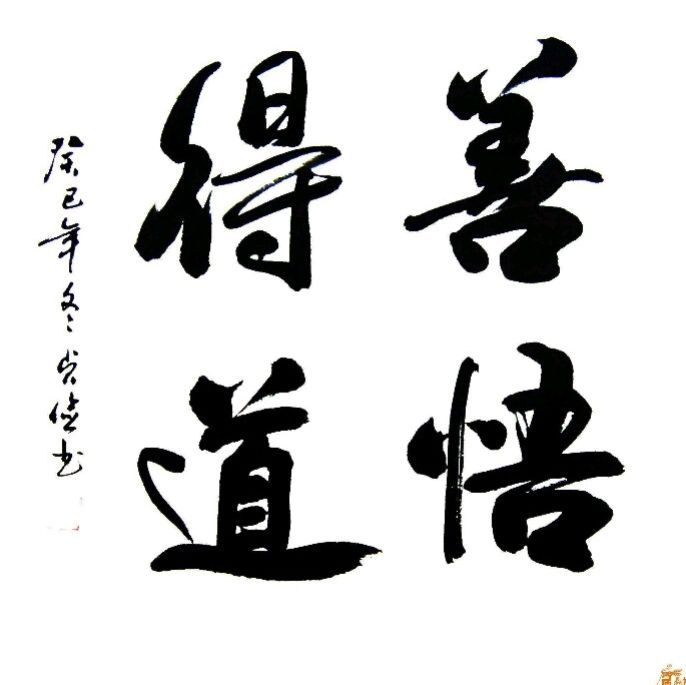 善悟
得道
癸巳年冬贞德书